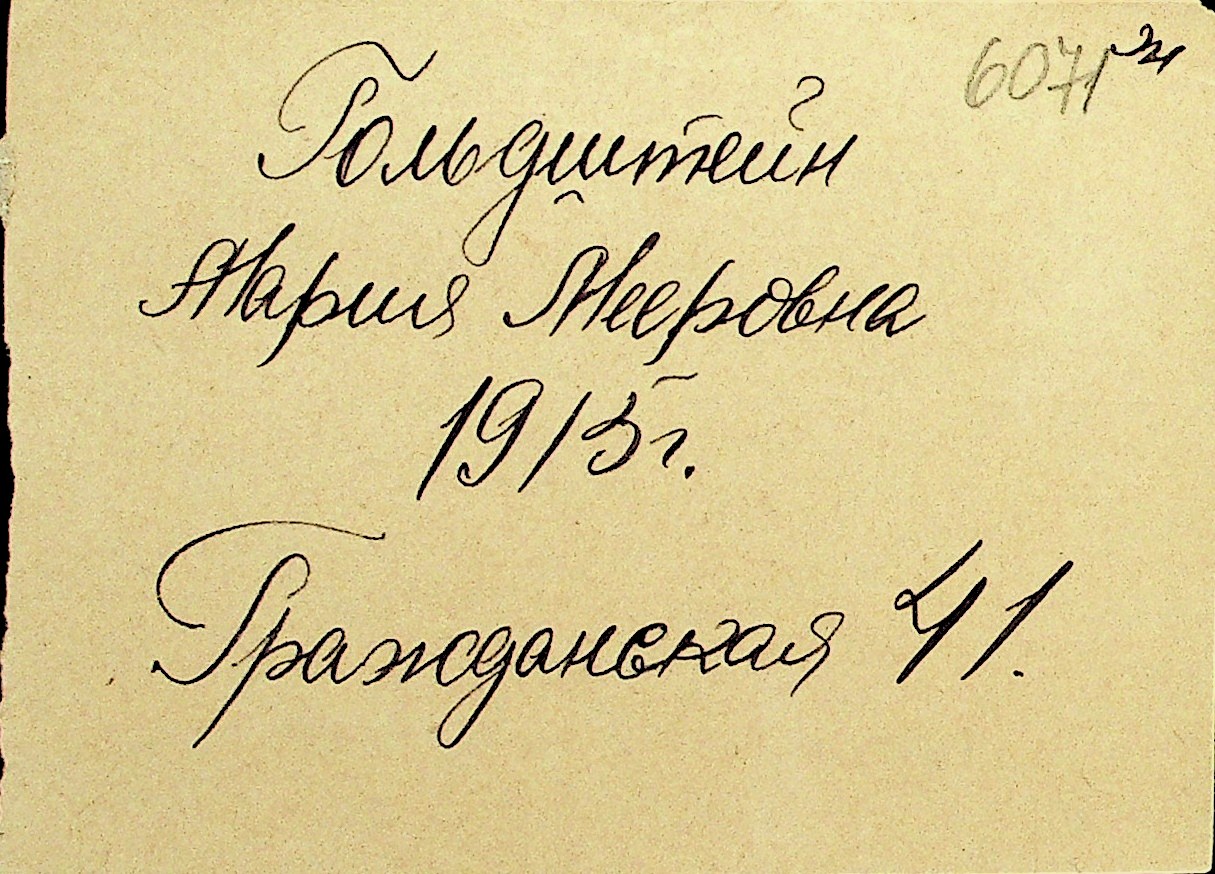 6071
Гольдштейн
Мария Мееровна
1915 г.
Гражданская 41.